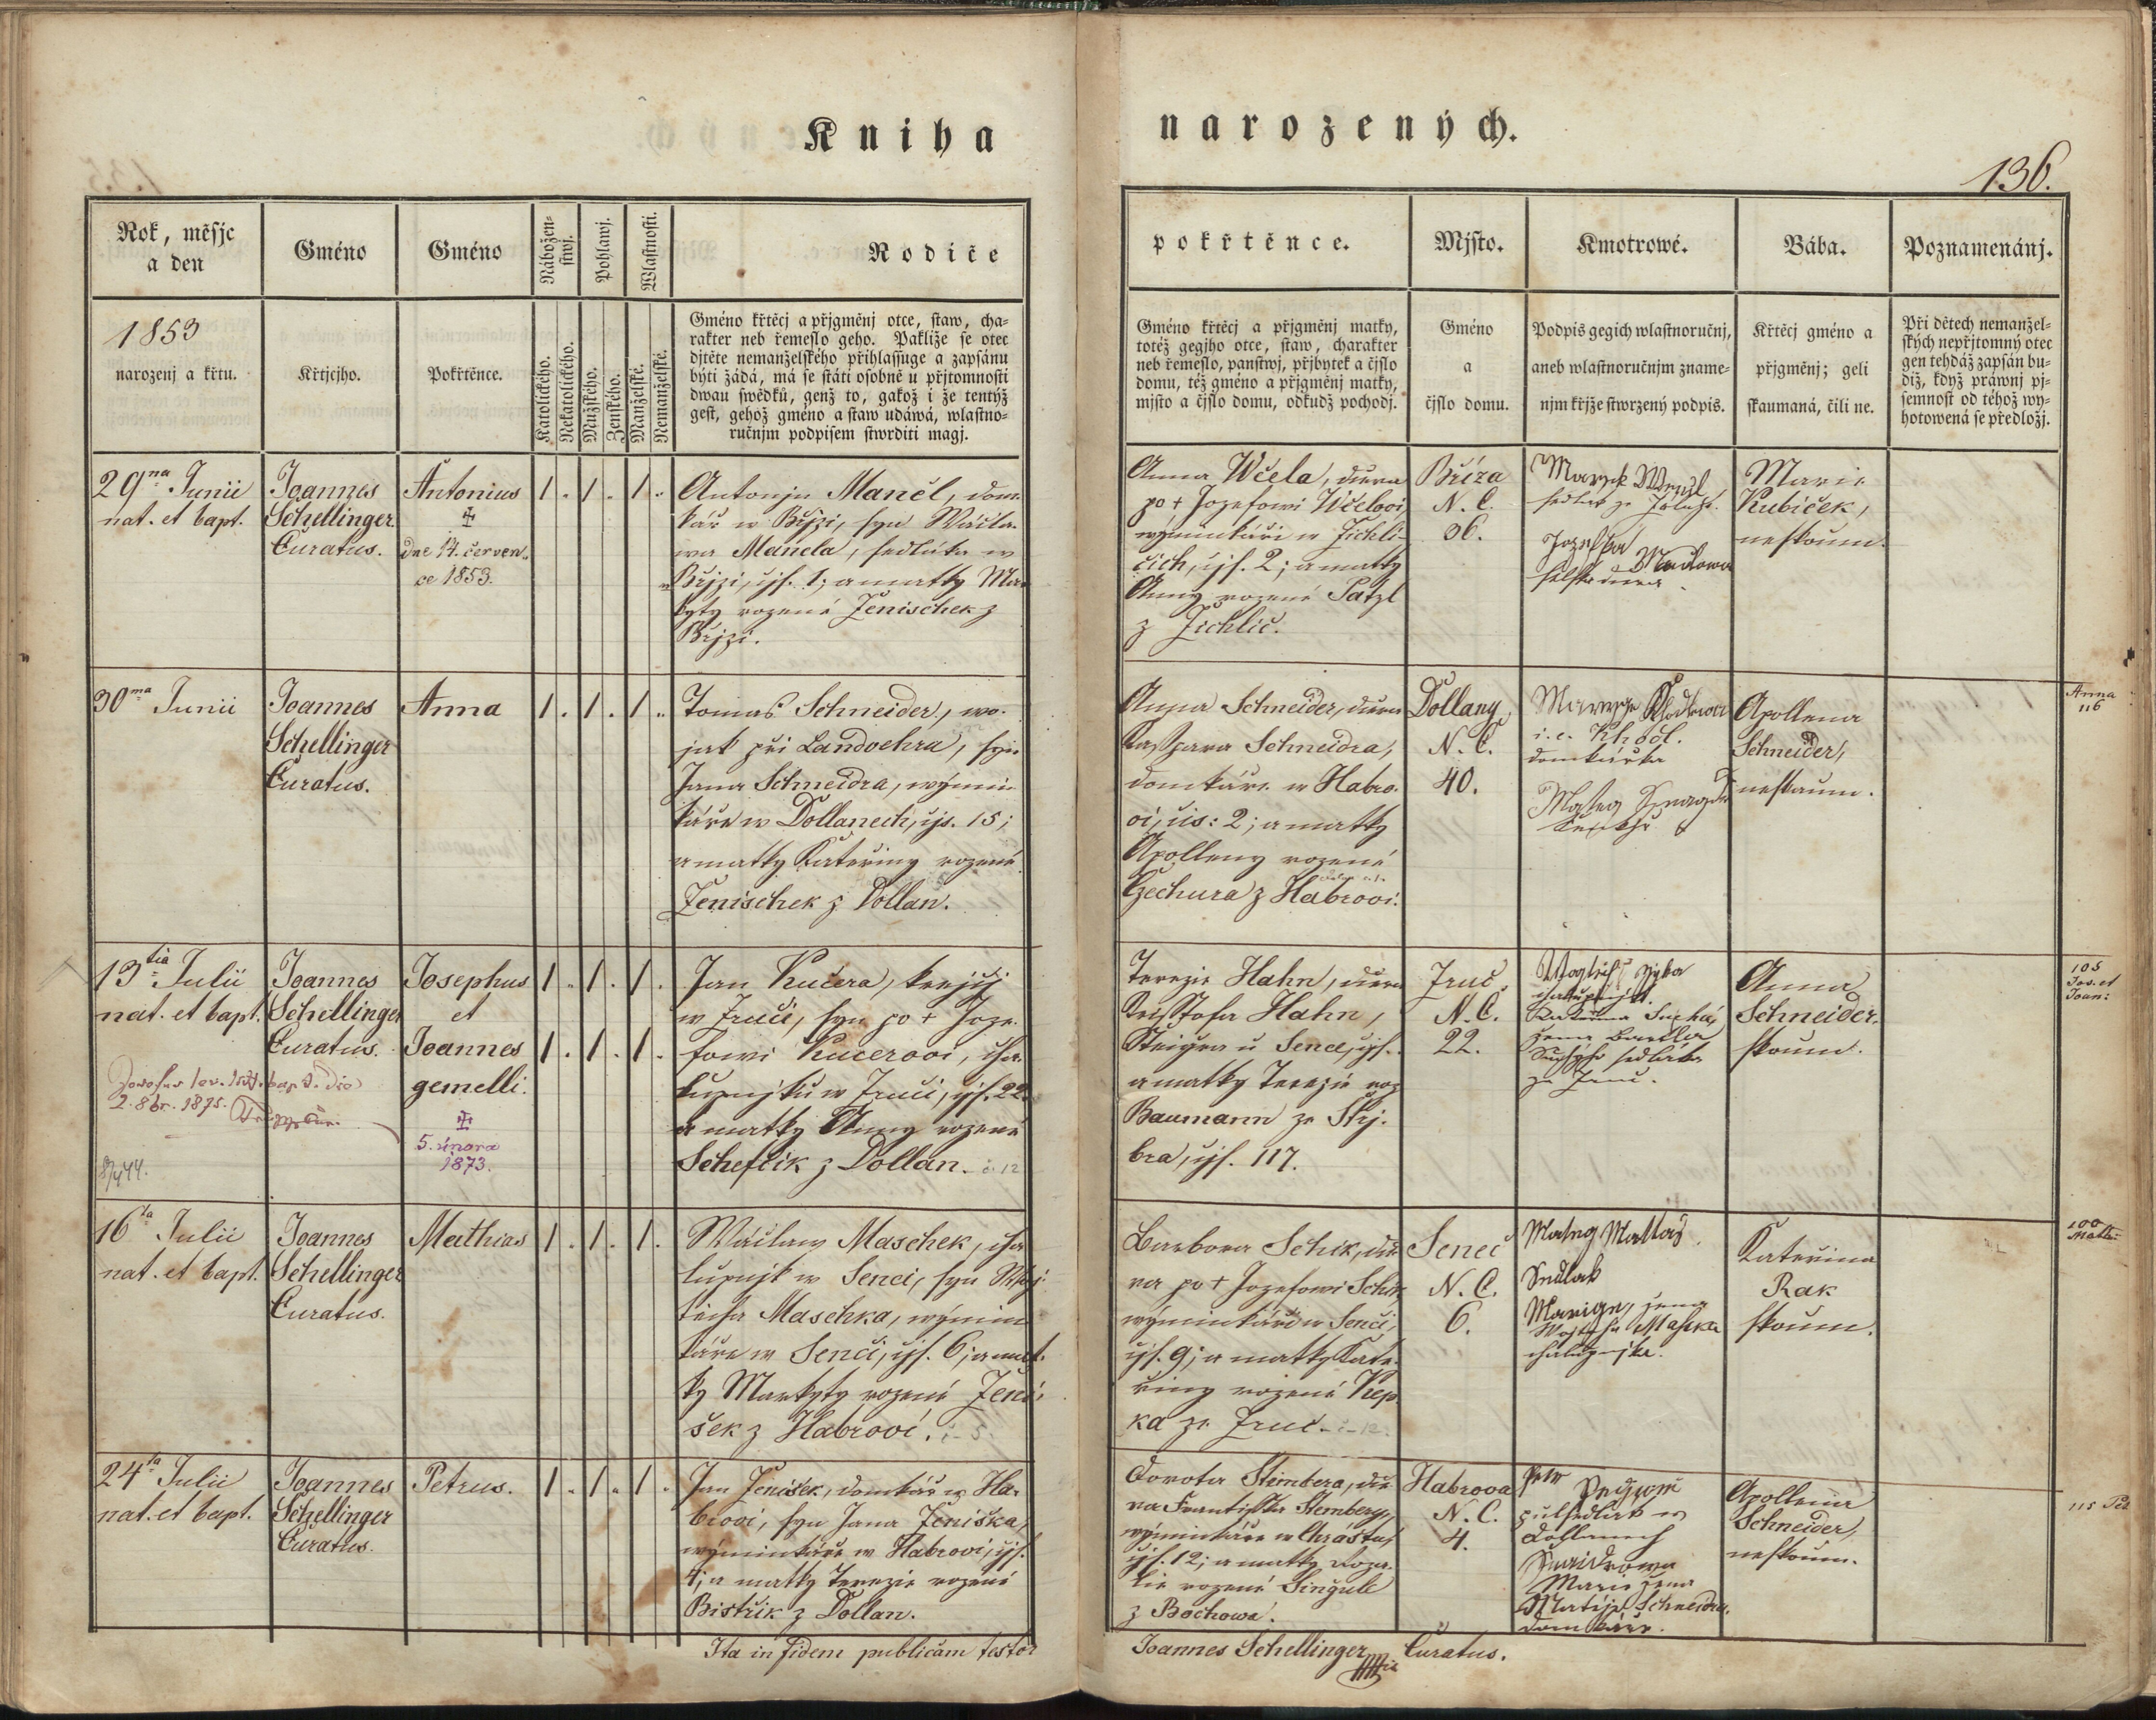 Kniha
narozených.
136.
Rok, měsjc
a den
Gméno
Gméno
Nábožen-
stwj.
Pohlawj.
Wlastnosti.
Rodiče
1853
narozenj a křtu.
Křtjcjho.
Pokřtěnce.
Katolického.
Nekatolického.
Mužského.
Ženského.
Manželské.
Nemanželské.
Gméno křtěcj a přjgměnj otce, staw, cha-
rakter neb řemeslo geho. Pakliže se otec
djtěte nemanželského přihlassuge a zapsánu
býti žádá, má se státi osobně u přjtomnosti
dwau swědků, genž to, gakož i že tentýž
gest, gehož gméno a staw udáwá, wlastno-
ručnjm podpisem stwrditi magj.
29na Junii
nat. et bapt.
Joannes
Schellinger
Curatus.
Antonius
dne 14. červen-
ce 1853.
1. 1. 1.
Antonjn Maněl, dom-
kář w Břjzi, syn Wácla-
wa Manela, sedláka w
Břjzi, čjs. 1; a matky Mar-
kyty rozené Jenischek z
Břjzi.
30ma Junii
Joannes
Schellinger
Curatus.
Anna
1. 1. 1.
Tomáš Schneider, wo-
jak při Landwehra, syn
Jana Schneidra, wýmin-
káře w Dollanech, čjs. 15;
a matky Kateřiny rozené
Jenischek z Dollan.
13tia Julii
nat. et bapt.
2. 8br. 1875.
Joannes
Schellinger
Curatus.
Josephus
et
Joannes
gemelli.
5. února
1873.
1. 1. 1.
1. 1. 1.
Jan Kučera, krejčj
w Jruči, syn po + Joze-
fowi Kucerovi, cha-
lupnjku w Jruči, čjs. 22
a matky Anny rozené
Scheflik z Dollan. č. 12
16ta Julii
nat. et bapt.
Joannes
Schellinger
Curatus.
Mathias
1. 1. 1.
Wáclaw Maschek, cha-
lupnjk w Senci, syn Woj-
těcha Maschka, wýmin-
káře w Senci, čjs. 6; a mat-
ky Markyty rozené Jeni-
šek z Habrovi. č. 5.
24ta Julii
nat. et bapt.
Joannes
Schellinger
Curatus.
Petrus.
1. 1. 1.
Jan Jenišek, domkář w Ha-
brovi, syn Jana Jeniška,
wýminkáře w Habrovi, čjs.
4; a matky Terezie rozené
Bistřik z Dollan.
Ita in fidem publicam testor
pokřtěnce.
Mjsto.
Kmotrowé.
Bába.
Poznamenánj.
Gméno křtěcj a přjgměnj matky,
totéž gegjho otce, staw, charakter
neb řemeslo, panstwj, přjbytek a čjslo
domu, též gméno a přjgměnj matky,
mjsto a čjslo domu, odkudž pochodj.
Gméno
a
čjslo domu.
Podpis gegich wlastnoručnj,
aneb wlastnoručnjm zname-
njm křjže stwrzený podpis.
Křtěcj gméno a
přjgměnj; geli
skaumaná, čili ne.
Při dětech nemanžel-
ských nepřjtomný otec
gen tehdáž zapsán bu-
diž, když práwnj pj-
semnost od téhož wy-
hotowená se předložj.
Anna Wčela, dcera
po + Jozefowi Wčelovi
wýminkáři w Jichli-
čich, čjs. 2; a matky
Anny rozené Patzl
z Jichlic.
Bříza
N. C.
36.
Jozefka
Marie
Kubíček,
neskoum.
Anna Schneider, dcera
Kašpara Schneidra,
domkáře w Habro-
vi, čis: 2; a matky
Apolleny rozené
Czechura z Habrovi.
Dollany
N. C.
40.
i. e. Khodl.
domkářka
Apollena
Schneider,
neskaum.
Anna
116
Terezie Hahn, dcera
Krisstofa Hahn,
Steigra u Sence, čjs.
a matky Terezie roz.
Baumann ze Střj-
bra, čjs. 117.
Jruč
N. C.
22.
Anna
Schneider.
skoum.
105
Jos. et
Joan:
Barbora Schik, dce-
ra po + Jozefowi Schik
wýminkáři w Senci,
čjs. 9; a matky Kate-
řiny rozené Kep-
ka ze Jruč. č. 12.
Senec
N. C.
6.
Matteg Mattas
Sedlak
Marige, žena
Wojtěcha Maschka
chalupnjka.
Kateřina
Rak
skoum.
100
Math:
Dorota Sternberg, dce-
ra Frantisska Sternberg,
wýminkáře w Chrástu,
čjs. 12; a matky Roza-
lie rozené Singule
z Bochowa.
Habrova
N. C.
4.
Petr
půlsedlák w
Dollanech
Marie žena
Matěje Schneidra,
domkáře.
Apollena
Schneider,
neskoum.
115 Pet
Joannes Schellinger Curatus.